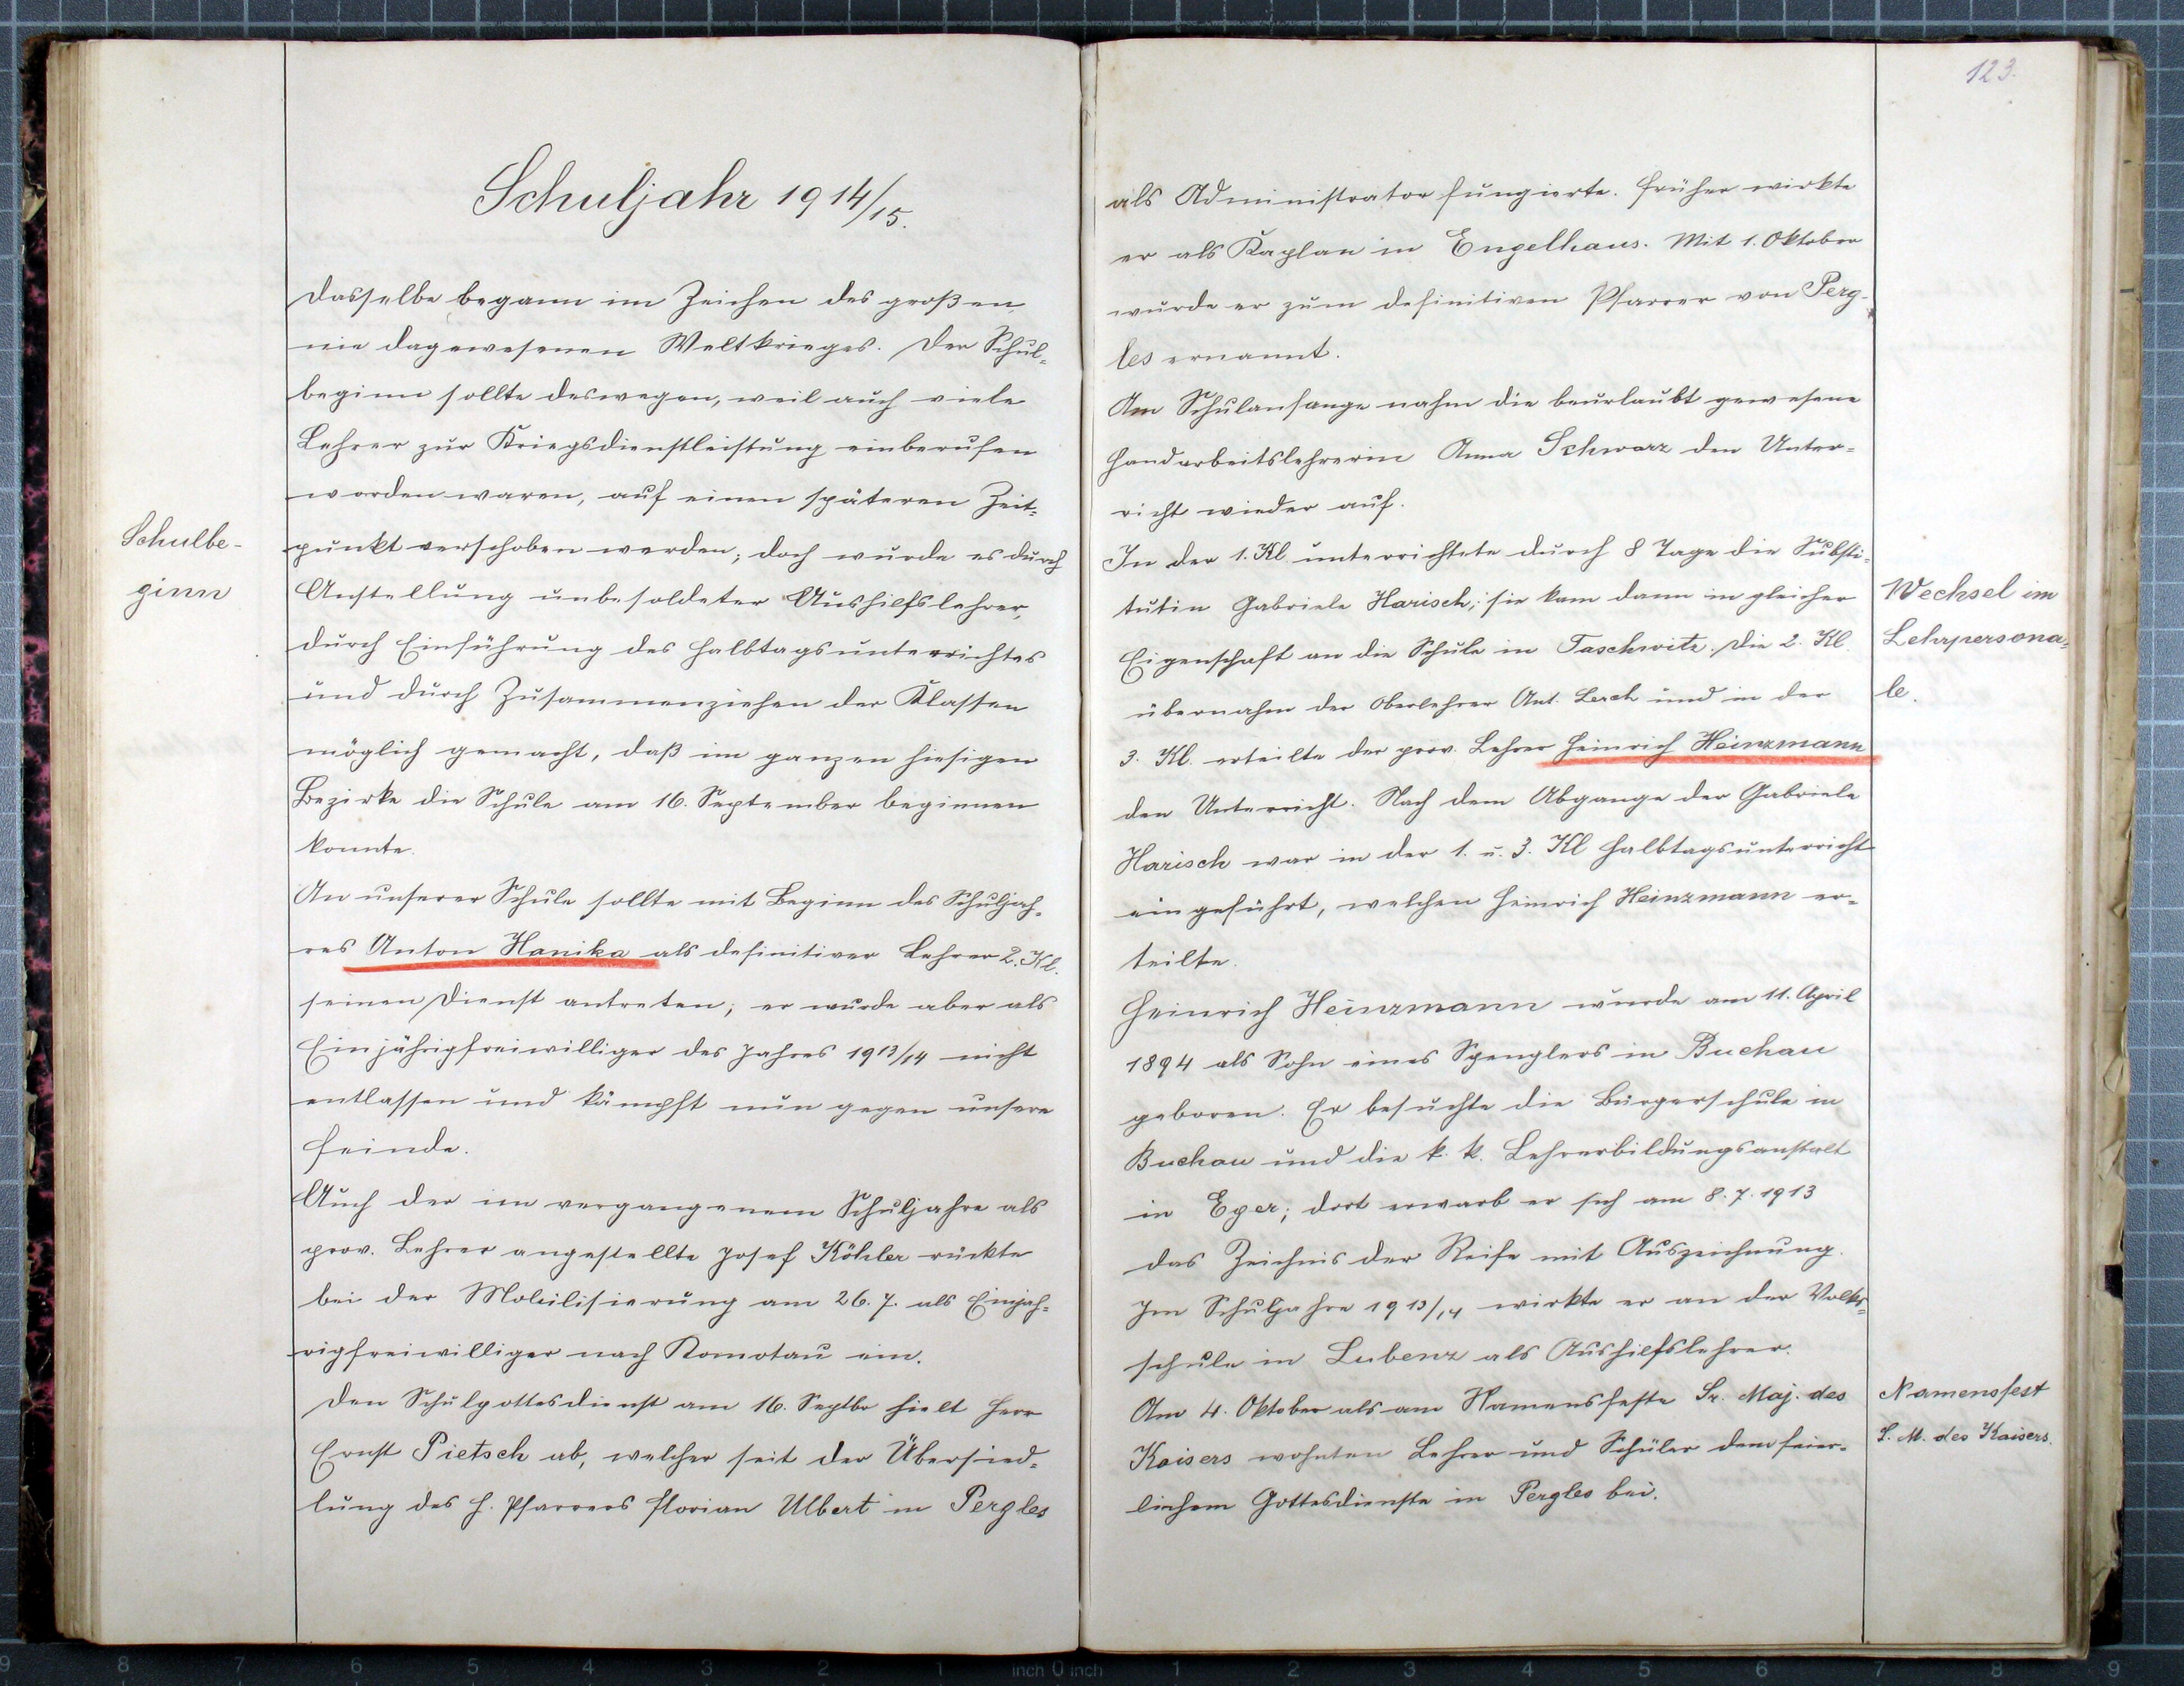 Schuljahr 1914/15.
Dasselbe begann im Zeichen des großen,
nie dagewesenen Weltkrieges. Der Schul-
beginn sollte deswegen, weil auch viele
Lehrer zur Kriegsdienstleistung einberufen
worden waren, auf einen späteren Zeit-
Schulbe-
punkt verschoben werden; doch wurde es durch
ginn
Anstellung unbesoldeter Aushilfslehrer,
durch Einführung des Halbtagsunterrichtes
und durch Zusammenziehen der Klassen
möglich gemacht, daß im ganzen hiesigen
Bezirke die Schule am 16. September beginnen
konnte.
An unserer Schule sollte mit Beginn des Schuljah-
res Anton Hanika als definitiver Lehrer 2. Kl.
seinen Dienst antreten; er wurde aber als
Einjährigfreiwilliger des Jahres 1913/14 nicht
entlassen und kämpft nun gegen unsere
Feinde.
Auch der im vergangenem Schuljahre als
prov. Lehrer angestellte Josef Köhler rückte
bei der Mobilisierung am 26. 7. als Einjäh-
rigfreiwilliger nach Komotau ein.
Den Schulgottesdienst am 16. Septbr hielt Herr
Ernst Pietsch ab, welcher seit der Übersied-
lung des H. Pfarrers Florian Ulbert in Pergles
123.
als Administrator fungierte. Früher wirkte
er als Kaplan in Engelhaus. Mit 1. Oktober
wurde er zum definitiven Pfarrer von Perg-
les ernannt.
Am Schulanfange nahm die beurlaubt gewesene
Handarbeitslehrerin Anna Schwarz den Unter-
richt wieder auf.
In der 1. Kl. unterrichtete durch 8 Tage die Substi-
tutin Gabriele Harisch; sie kam dann in gleicher
Wechsel im
Eigenschaft an die Schule in Taschwitz. Die 2. Kl.
Lehrpersona-
übernahm der Oberlehrer Ant. Lerch und in der
le.
3. Kl. erteilte der prov. Lehrer Heinrich Heinzmann
den Unterricht. Nach dem Abgange der Gabriele
Harisch war in der 1. u. 3. Kl Halbtagsunterricht
eingeführt, welchen Heinrich Heinzmann er-
teilte.
Heinrich Heinzmann wurde am 11. April
1894 als Sohn eines Spenglers in Buchau
geboren. Er besuchte die Bürgerschule in
Buchau und die k. k. Lehrerbildungsanstalt
in Eger; dort erwarb er sich am 8. 7. 1913
das Zeichnis der Reife mit Auszeichnung.
Im Schuljahre 1913/14 wirkte er an der Volks-
schule in Lubenz als Aushilfslehrer.
Am 4. Oktober als am Namensfeste Sr. Maj. des
Namensfest
Kaisers wohnten Lehrer und Schüler dem feier-
S. M. des Kaisers.
lichem Gottesdienste in Pergles bei.
9 8 7 6 5 4 3 2 1 inch 0 inch 1 2 3 4 5 6 7 8 9